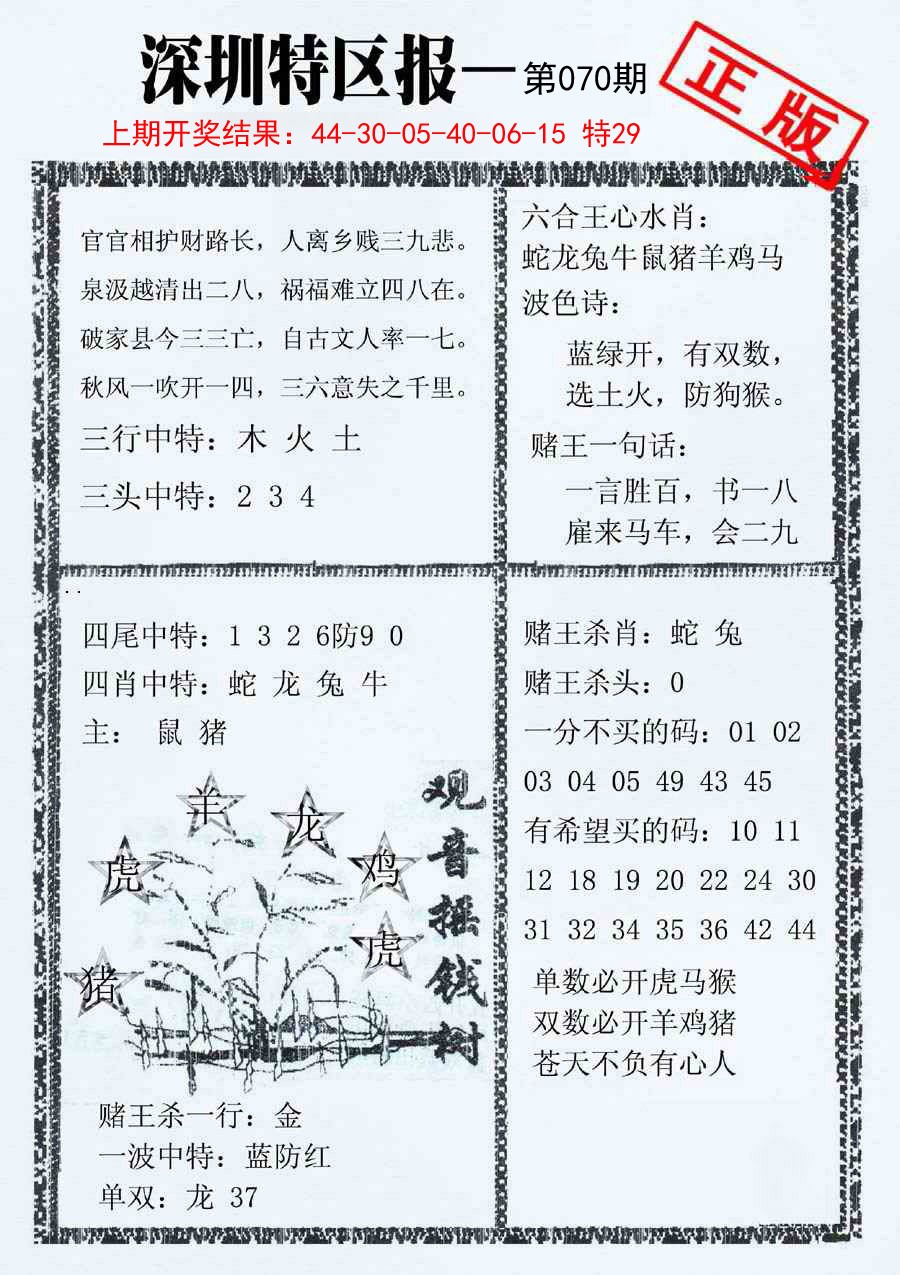 深圳特区报—第070期
正版
上期开奖结果：44-30-05-40-06-15 特29
官官相护财路长，人离乡贱三九悲。
泉汲越清出二八，祸福难立四八在。
破家县今三三亡，自古文人率一七。
秋风一吹开一四，三六意失之千里。
三行中特：木 火 土
三头中特：2 3 4
六合王心水肖：
蛇龙兔牛鼠猪羊鸡马
波色诗：
蓝绿开，有双数，
选土火，防狗猴。
赌王一句话：
一言胜百，书一八
雇来马车，会二九
四尾中特：1 3 2 6防9 0
四肖中特：蛇 龙 兔 牛
主： 鼠 猪
羊
龙
虎
鸡
虎
猪
观音摇钱树
赌王杀一行：金
一波中特：蓝防红
单双：龙 37
赌王杀肖：蛇 兔
赌王杀头：0
一分不买的码：01 02
03 04 05 49 43 45
有希望买的码：10 11
12 18 19 20 22 24 30
31 32 34 35 36 42 44
单数必开虎马猴
双数必开羊鸡猪
苍天不负有心人